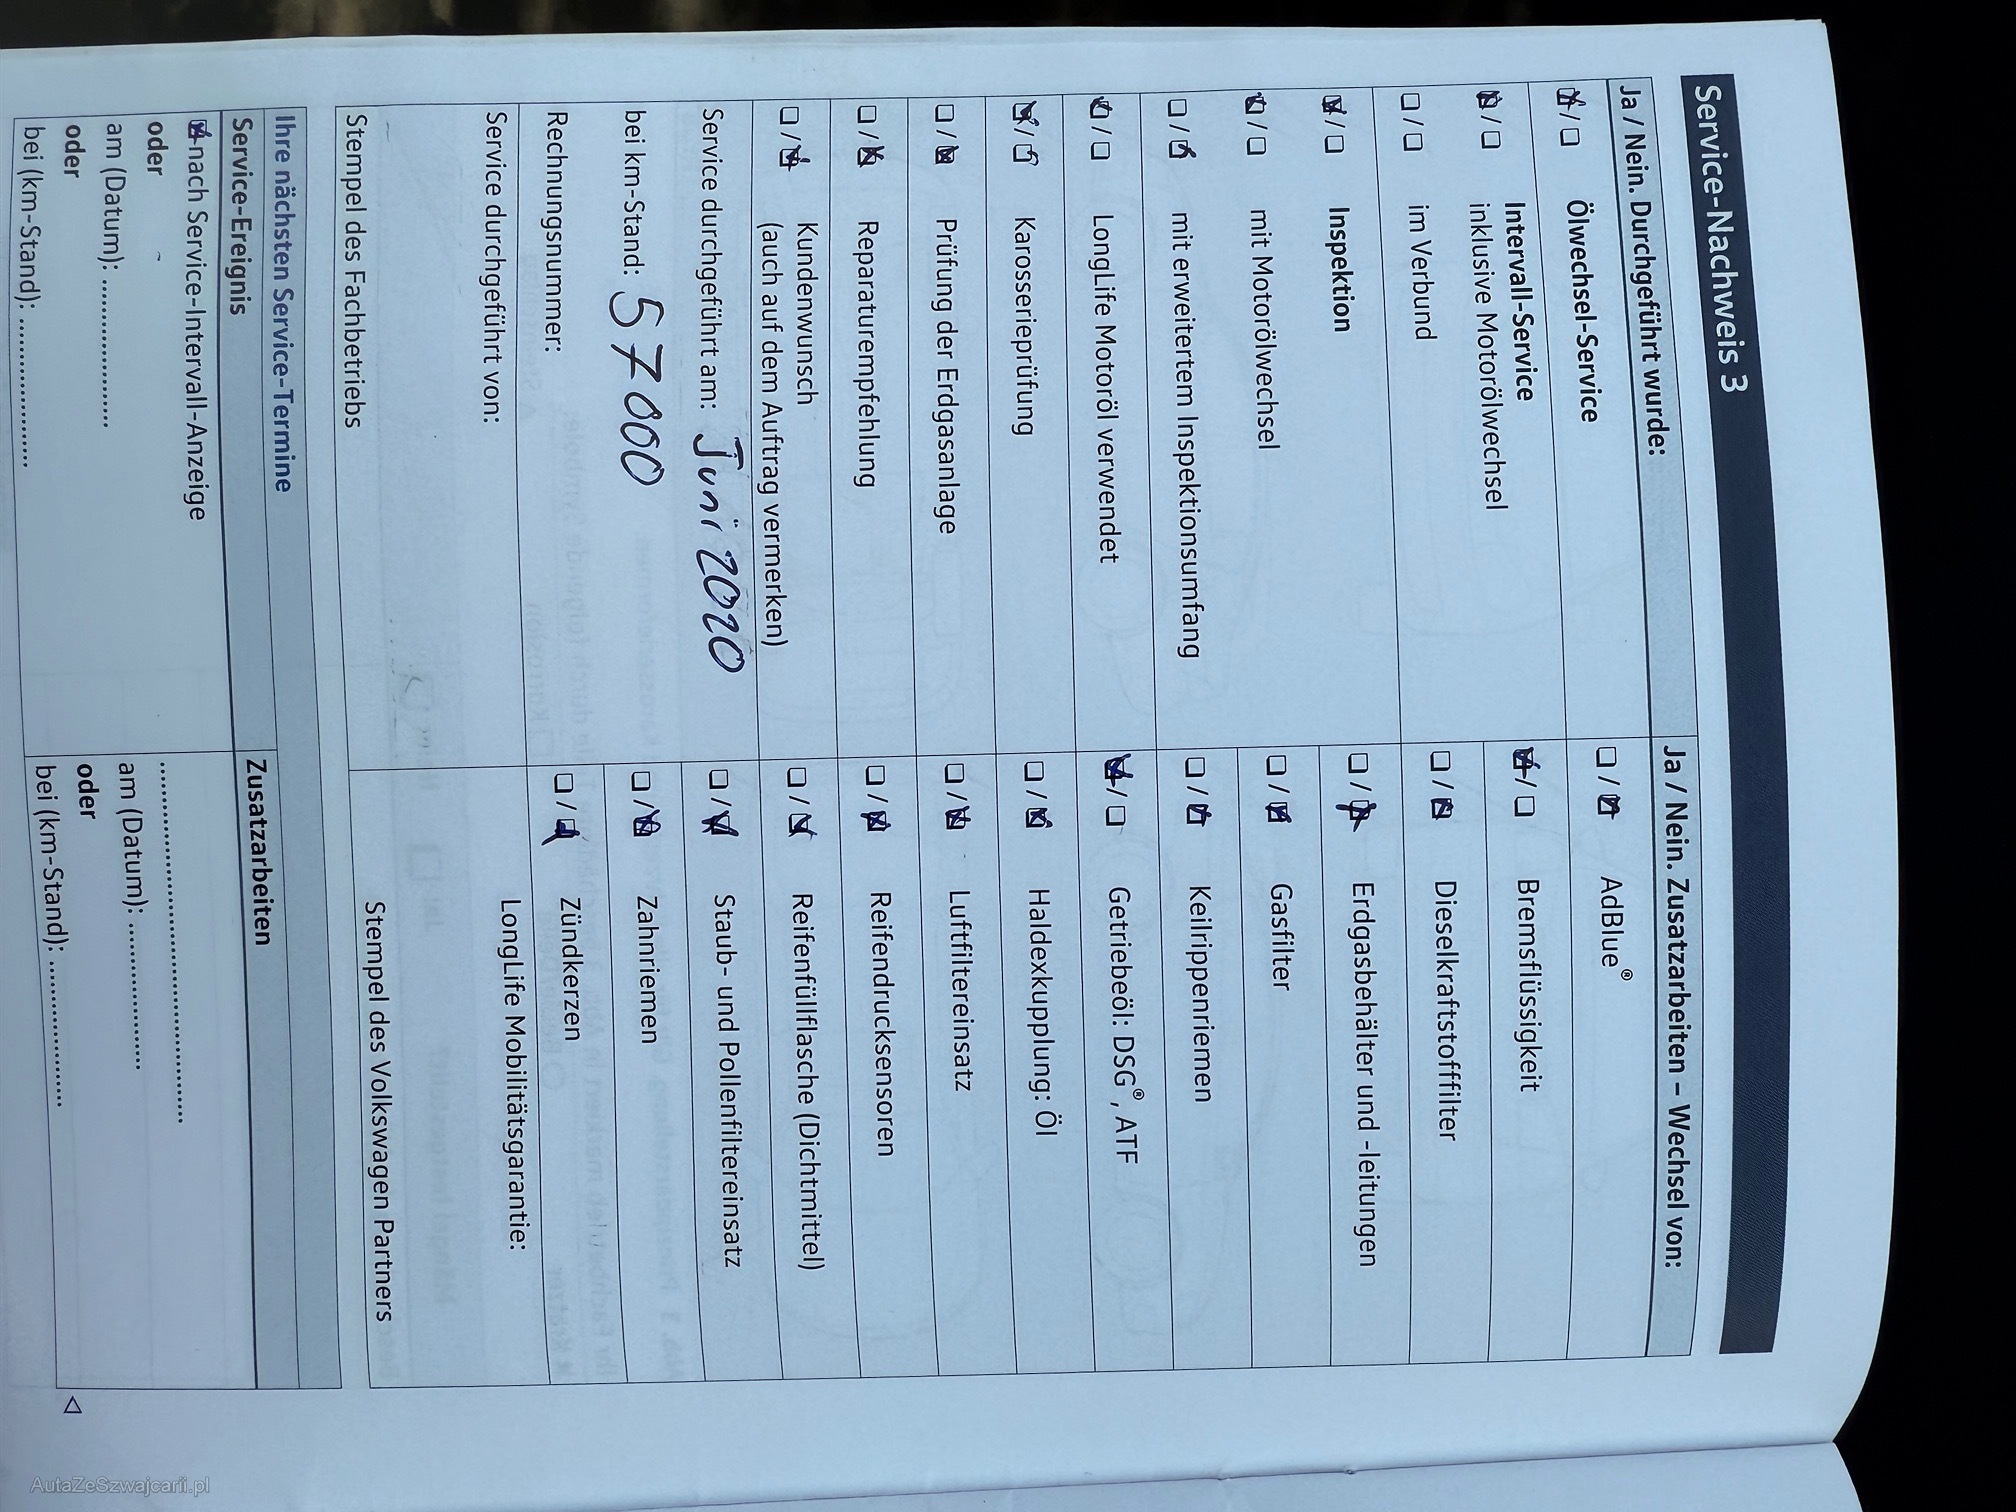 Service-Nachweis 3
Ja / Nein. Durchgeführt wurde:
☒ / ☐ Ölwechsel-Service
☒ / ☐ Intervall-Service
inklusive Motorölwechsel
☐ / ☐ im Verbund
☒ / ☐ Inspektion
☒ / ☐ mit Motorölwechsel
☐ / ☒ mit erweitertem Inspektionsumfang
☒ / ☐ LongLife Motoröl verwendet
☒ / ☐ Karosserieprüfung
☐ / ☒ Prüfung der Erdgasanlage
☐ / ☒ Reparaturempfehlung
☐ / ☒ Kundenwunsch
(auch auf dem Auftrag vermerken)
Service durchgeführt am: Juni 2020
bei km-Stand: 57000
Rechnungsnummer:
Service durchgeführt von:
Stempel des Fachbetriebs
Ja / Nein. Zusatzarbeiten – Wechsel von:
☐ / ☒ AdBlue®
☒ / ☐ Bremsflüssigkeit
☐ / ☒ Dieselkraftstofffilter
☐ / ☒ Erdgasbehälter und -leitungen
☐ / ☒ Gasfilter
☐ / ☒ Keilrippenriemen
☒ / ☐ Getriebeöl: DSG®, ATF
☐ / ☒ Haldexkupplung: Öl
☐ / ☒ Luftfiltereinsatz
☐ / ☒ Reifendrucksensoren
☐ / ☒ Reifenfüllflasche (Dichtmittel)
☐ / ☒ Staub- und Pollenfiltereinsatz
☐ / ☒ Zahnriemen
☐ / ☒ Zündkerzen
LongLife Mobilitätsgarantie:
Stempel des Volkswagen Partners
Ihre nächsten Service-Termine
Service-Ereignis
☒ nach Service-Intervall-Anzeige
oder
am (Datum): ......................
oder
bei (km-Stand): ......................
Zusatzarbeiten
......................................................
am (Datum): ......................
oder
bei (km-Stand): ......................
AutaZeSzwajcarii.pl